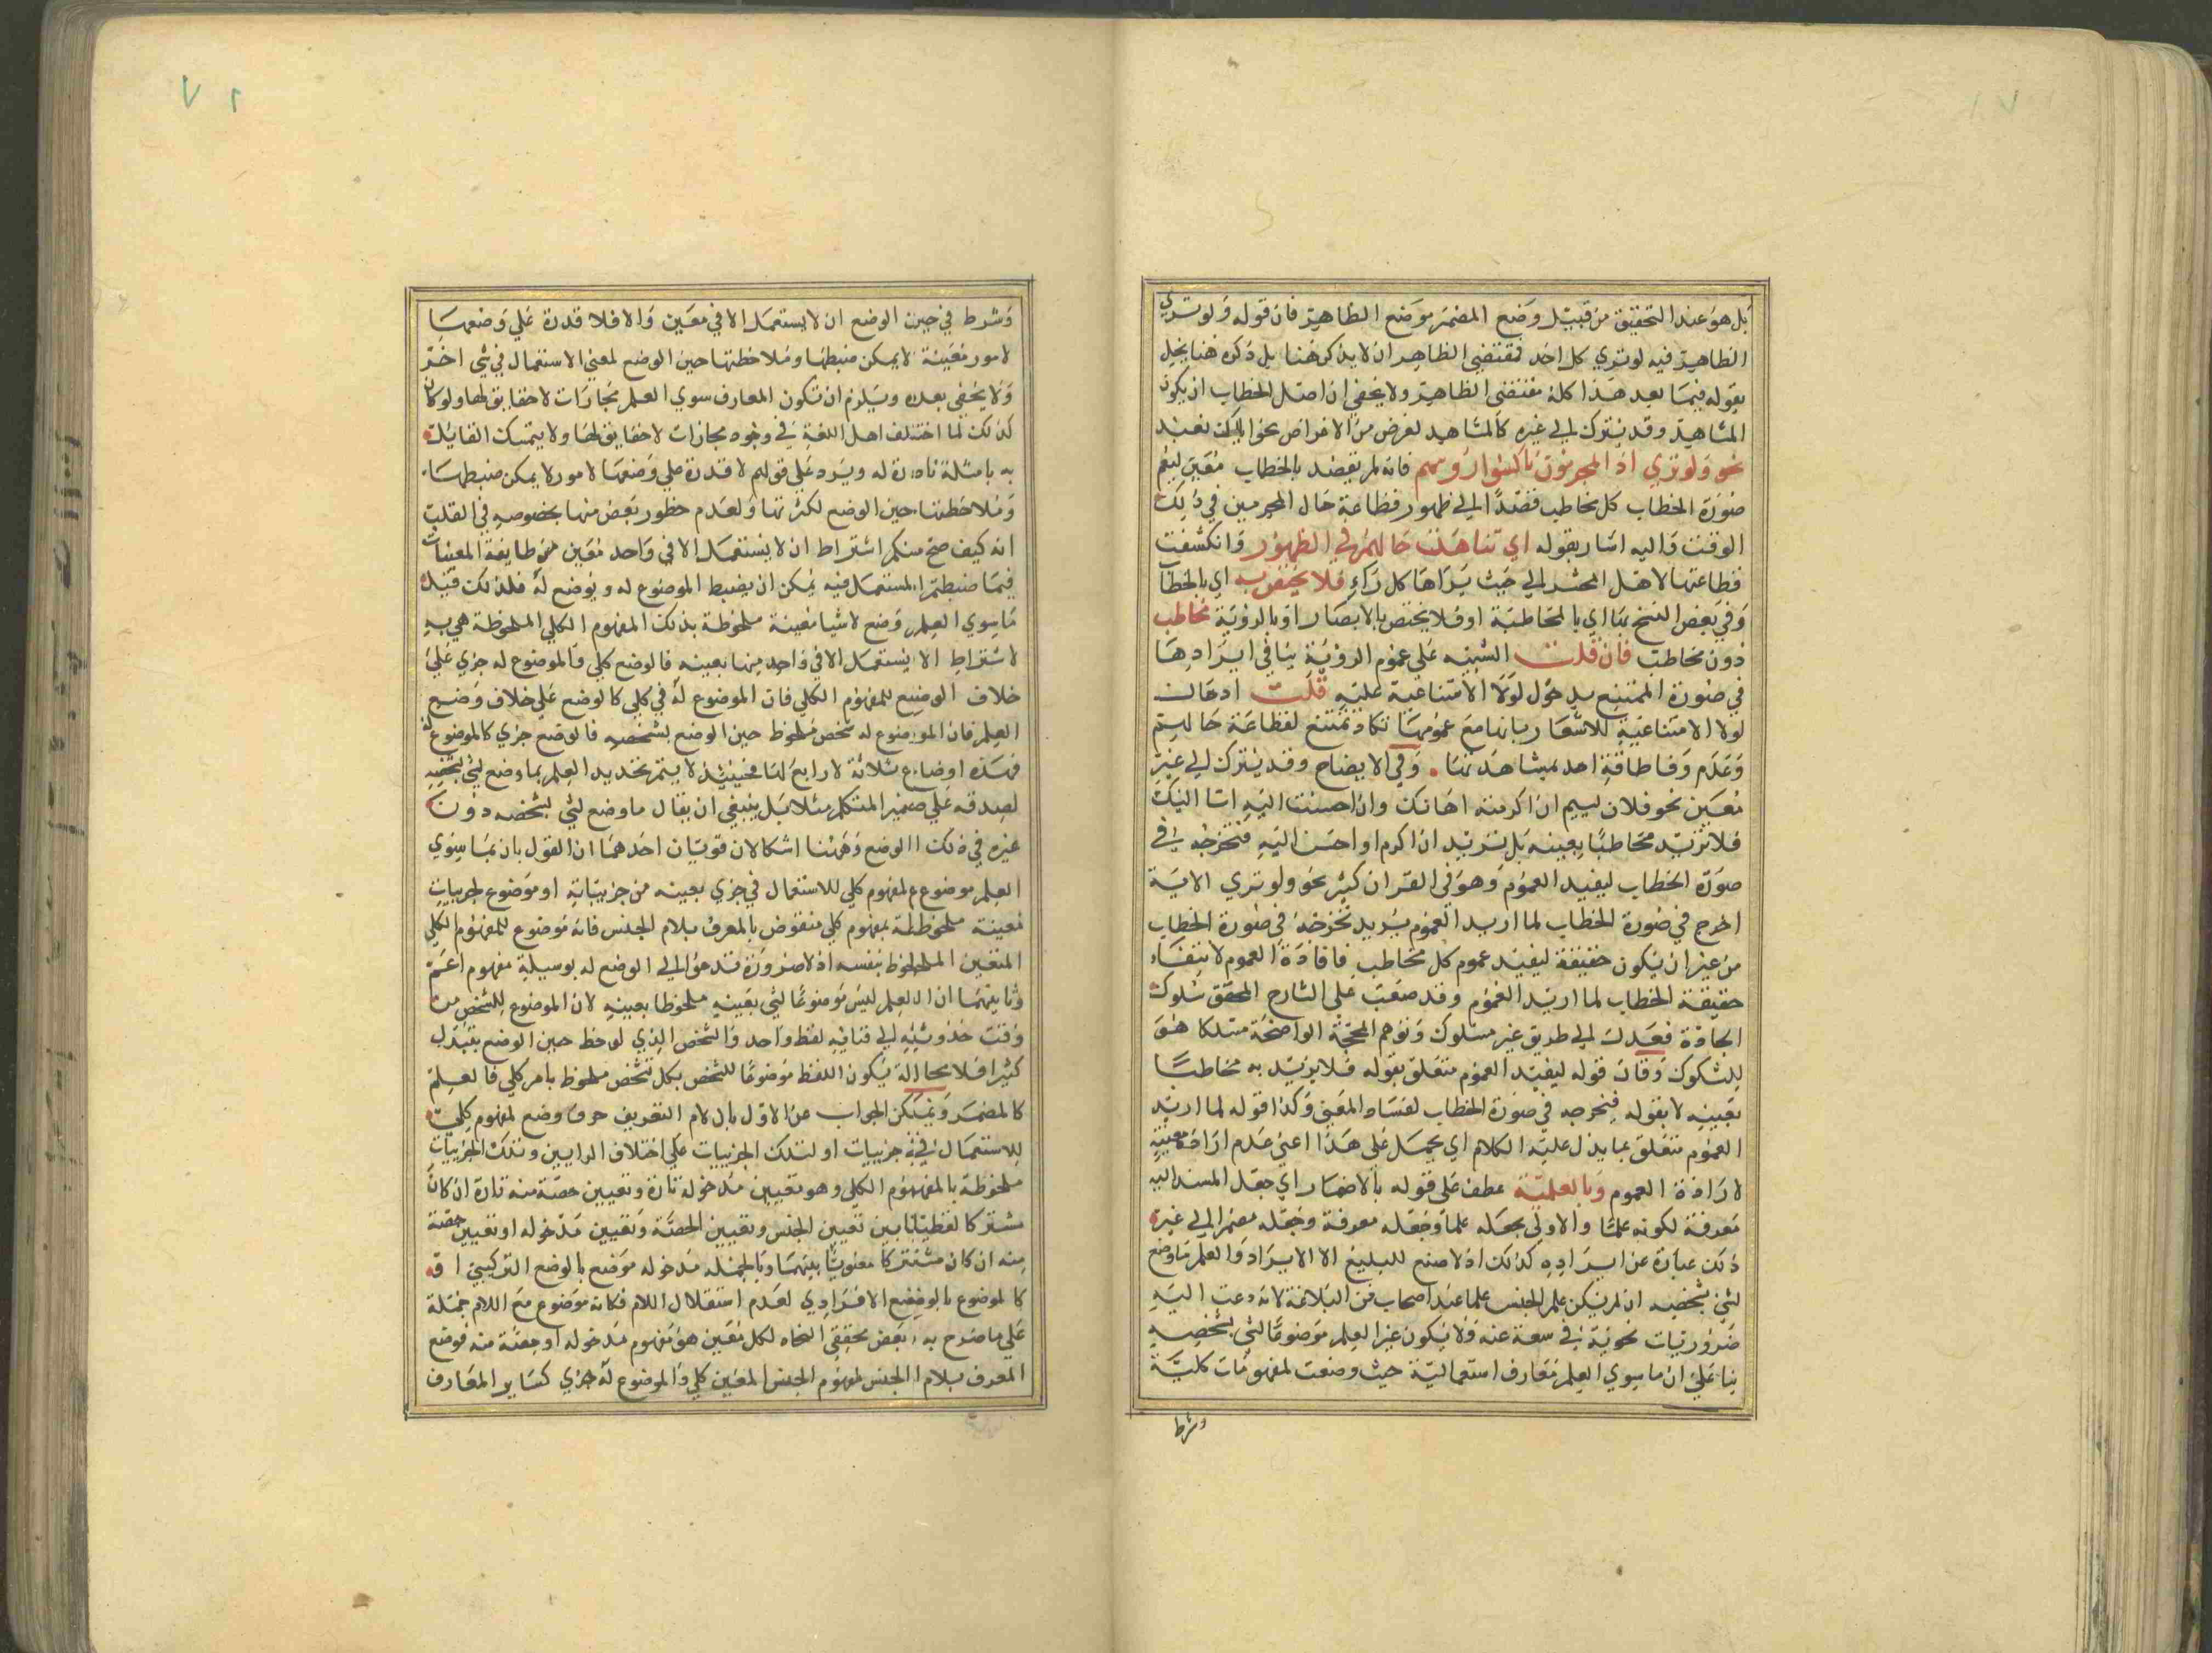 بل هو عند التحقيق من قبيل وضع المضمر موضع الظاهر فان قوله ولو تري
الظاهر فيه لو تري كل احد فمقتضي الظاهر ان لا يذكر هنا بل ذكره هنا يخل
بقوله فيما بعد هذا كله مقتضي الظاهر ولا يخفي ان اصل الخطاب ان يكون
المشاهد وقد يترك الي غيره كالمشاهد لغرض من الاغراض نحو اياك نعبد
نحو ولو تري اذ المجرمون ناكسوا رؤسهم فانه لم يقصد بالخطاب معين ليعم
صورة الخطاب كل مخاطب قصدا الي ظهور فظاعة حال المجرمين في ذلك
الوقت واليه اشار بقوله اي تناهت حالهم في الظهور وانكشفت
فظاعتها لاهل المحشر الي حيث يراها كل راء فلا يختص به اي بالخطا
وفي بعض النسخ بها اي بالمخاطبة او فلا يختص بالابصار او بالرؤية مخاطب
دون مخاطب فان قلت التنبيه علي عموم الرؤية ينافي ايرادها
في صورة الممتنع بدخول لولا الامتناعية عليه قلت ادخال
لولا الامتناعية للاشعار بانها مع عمومها تكاد تمتنع لفظاعة حالهم
وعدم وفا طاقة احد بمشاهدتها . وفي الايضاح وقد يترك الي غير
معين نحو فلان لييم ان اكرمته اهانك وان احسنت اليه اسا اليك
فلا تريد مخاطبا بعينه بل تريد ان اكرم او احسن اليه فتخرجه في
صورة الخطاب ليفيد العموم وهو في القران كثير نحو ولو تري الاية
اخرج في صورة الخطاب لما اريد العموم يريد تخرجه في صورة الخطاب
من غير ان يكون حقيقة ليفيد عموم كل مخاطب فافادة العموم لانتفاء
حقيقة الخطاب لما اريد العموم وقد صعب علي الشارح المحقق سلوك
الجادة فعدل الي طريق غير مسلوك وتوهم المحجة الواضحة مسلكا هو
للشكوك وقال قوله ليفيد العموم متعلق بقوله فلا يريد به مخاطبا
بعينه لا بقوله فيخرجه في صورة الخطاب لفساد المعني وكذا قوله لما اريد
العموم متعلق بما يدل عليه الكلام اي يحمل علي هذا اعني عدم ارادة معينه
لارادة العموم وبالعلمية عطف علي قوله بالاضمار اي جعل المسند اليه
معرفة لكونه علما والاولي بجعله علما وجعله معرفة وجعله مضمرا الي غير
ذلك عبارة عن ايراده كذلك اذ لا صنع للبليغ الا الايراد والعلم ما وضع
لشي بشخصه ان لم يكن علم الجنس علما عند اصحاب فن البلاغة لانه دعت اليه
ضروريات نحوية في سعة عنه ولا يكون غير العلم موضوعا لشي بشخصه
بنا علي ان ما سوي العلم معارف استعمالية حيث وضعت لمفهومات كلية
وشرط
وشرط في حين الوضع ان لا يستعمل الا في معين والا فلا قدرة علي وضعها
لامور معينة لا يمكن ضبطها وملاحظتها حين الوضع لمعني الاستعمال في شي اخر
ولا يخفي بعده ويلزم ان تكون المعارف سوي العلم مجازات لا حقايق لها ولو كان
كذلك لما اختلف اهل اللغة في وجود مجازات لا حقايق لها ولا يتمسك القايل
به بامثلة نادرة له ويرد علي قولهم لا قدرة علي وضعها لامور لا يمكن ضبطها
وملاحظتها حين الوضع لكثرتها ولعدم خطور بعض منها بخصوصه في القلب
انه كيف صح منكم اشتراط ان لا يستعمل الا في واحد معين من طايفة المعينات
فيما ضبطتم المستعمل فيه يمكن ان يضبط الموضوع له ويوضع له فلذلك قيل
ما سوي العلم وضع لاشيا معينة ملحوظة بذلك المفهوم الكلي الملحوظة هي به
لاشتراط الا يستعمل الا في واحد منها بعينه فالوضع كلي والموضوع له جزي علي
خلاف الوضع للمفهوم الكلي فان الموضوع له في كلي كالوضع علي خلاف وضع
العلم فان الموضوع له شخص ملحوظ حين الوضع بشخصه فالوضع جزي كالموضوع له
فهذه اوضاع ثلاثة لا رابع لها فحينئذ لا يتم تحديد العلم بما وضع لشي بشخصه
لصدقه علي ضمير المتكلم مثلا بل ينبغي ان يقال ما وضع لشي بشخصه دون
غيره في ذلك الوضع وههنا اشكالان قويان احدهما ان القول بان ما سوي
العلم موضوع لمفهوم كلي للاستعمال في جزي بعينه من جزيياته او موضوع لجزييات
معينة ملحوظة بمفهوم كلي منقوض بالمعرف بلام الجنس فانه موضوع للمفهوم الكلي
المتعين الملحوظ بنفسه اذ لا ضرورة تدعو الي الوضع له بوسيلة مفهوم اعم
وثانيهما ان العلم ليس موضوعا لشي بعينه ملحوظا بعينه لان الموضوع للشخص من
وقت حدوثه الي فنائه لفظ واحد والشخص الذي لوحظ حين الوضع يتبدل
كثيرا فلا محالة يكون اللفظ موضوعا للشخص بكل تشخص ملحوظ بامر كلي فالعلم
كالمضمر ويمكن الجواب عن الاول بان لام التعريف حرف وضع لمفهوم كلي
للاستعمال في جزييات او لتلك الجزييات علي اختلاف الرايين وتلك الجزييات
ملحوظة بالمفهوم الكلي وهو تعيين مدخوله تارة وتعيين حصة منه تارة ان كان
مشتركا لفظيا بين تعيين الجنس وتعيين الحصة وتعيين مدخوله او تعيين حصة
منه ان كان مشتركا معنويا بينهما وبالجملة مدخوله موضع بالوضع التركيبي او
كالموضوع بالوضع الافرادي لعدم استقلال اللام فكانه موضوع مع اللام جملة
علي ما صرح به بعض محققي النحاه لكل معين هو مفهوم مدخوله او حصة منه فوضع
المعرف بلام الجنس لمفهوم الجنس المعين كلي والموضوع له جزي كساير المعارف